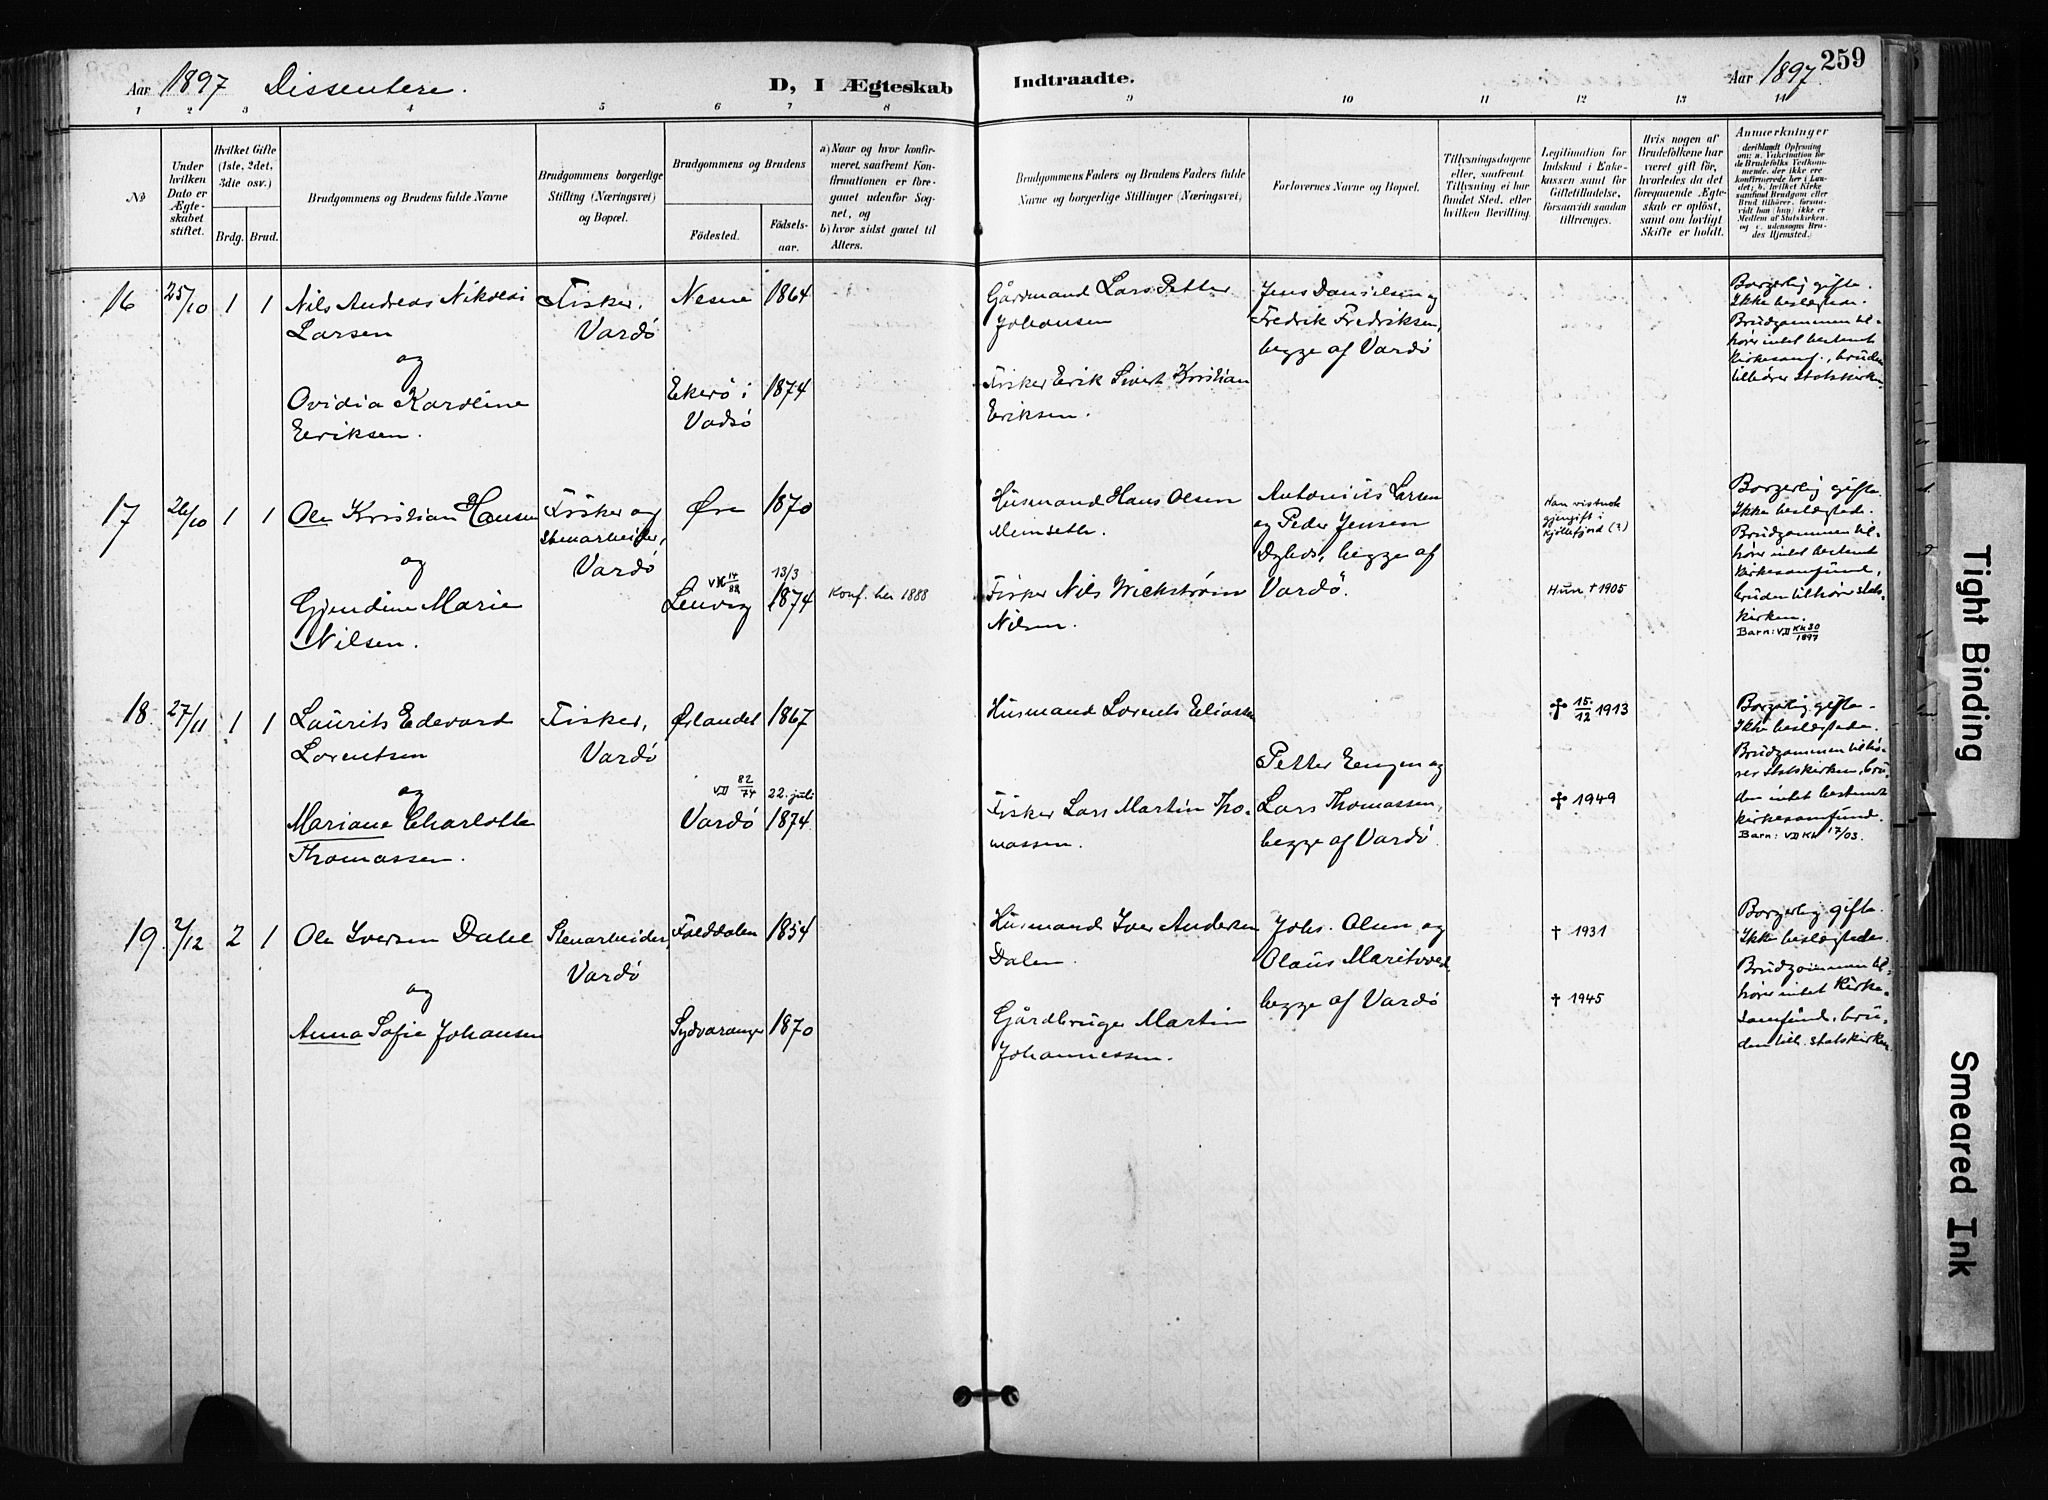 Aar 1897 Dissentere.
D, I Ægteskab Indtraadte.
Aar 1897. 259
1 2 3 4 5 6 7 8 9 10 11 12 13 14
№
Under hvilken Dato er Ægteskabet stiftet.
Hvilket Gifte (1ste, 2det, 3die osv.)
Brdg. Brud.
Brudgommens og Brudens fulde Navne
Brudgommens borgerlige Stilling (Næringsvei) og Bopæl.
Brudgommens og Brudens
Fødested.
Fødselsaar.
a) Naar og hvor konfirmeret, saafremt Konfirmationen er foregaaet udenfor Sognet, og
b) hvor sidst gaaet til Alters.
Brudgommens Faders og Brudens Faders fulde Navne og borgerlige Stillinger (Næringsvei)
Forlovernes Navne og Bopæl.
Tillysningsdagene eller, saafremt Tillysning ei har fundet Sted, efter hvilken Bevilling.
Legitimation for Indskud i Enkekassen samt for Giftetilladelse, forsaavidt saadan tiltrænges.
Hvis nogen af Brudefolkene har været gift før, hvorledes da det foregaaende Ægteskab er opløst, samt om lovligt Skifte er holdt.
Anmærkninger
(deriblandt Oplysning om: a. Vakcination for de Brudefolks Vedkommende, der ikke ere konfirmerede her i Landet; b. hvilket Kirkesamfund Brudgom eller Brud tilhører, forsaavidt han (hun) ikke er Medlem af Statskirken, og c. udensogns Brudes Hjemsted.)
16 25/10 1 1
Nils Andreas Nikolai
Larsen
og
Ovidia Karoline
Eriksen.
Fisker,
Vardö
Nesne 1864
Ekerö i 1874
Vadsö
Gårdmand Lars Petter
Johansen
Fisker Erik Sivert Kristian
Eriksen.
Jens Danielsen og
Fredrik Fredriksen,
begge af Vardö
Borgerlig gifte.
Ikke beslægtede.
Brudgommen til-
hører intet bestemt
kirkesamf., bruden
tilhører Statskirken.
17 26/10 1 1
Ole Kristian Hansen
og
Gjendine Marie
Nilsen.
Fisker og
Stenarbeider,
Vardö
Øre 1870
14/88 13/3
Lenvig 1874
Konf. her 1888
Husmand Hans Olsen
Meinseth.
Fisker Nils Wickström
Nilsen.
Antonius Larsen
og Peder Jensen
begge af
Vardö.
Han vistnok
gjengift i
Kjøllefjord (?)
Hun † 1905
Borgerlig gifte.
Ikke beslægtede.
Brudgommen til-
hører intet bestemt
kirkesamfund,
bruden tilhører stats-
kirken.
Barn: VII Kk 30/1897
18. 27/11 1 1
Laurits Edevard
Lorentsen
og
Mariane Charlotte
Thomassen.
Fisker,
Vardö
Ørlandet 1867
VII 82/74 22. juli
Vardö 1874
Husmand Lorents Eliassen
Fisker Lars Martin Tho-
massen.
Petter Engen og
Lars Thomassen,
begge af Vardö.
✝ 15/12 1913
✝ 1949
Borgerlig gifte.
Ikke beslægtede.
Brudgommen tilhö-
rer statskirken, bru-
den intet bestemt
kirkesamfund.
Barn: VII Kk 17/03.
19 2/12 2 1
Ole Iversen Dahl
og
Anna Sofie Johansen
Stenarbeider,
Vardö
Folddalen 1854
Sydvaranger 1870
Husmand Iver Andersen
Dalen.
Gårdbruger Martin
Johannessen.
Johs. Olsen og
Olaus
begge af Vardö
† 1931
† 1945
Borgerlig gifte.
Ikke beslægtede.
Brudgommen til-
hører intet Kirke-
samfund, bru-
den tilh. statskirken.
Tight Binding
Smeared Ink